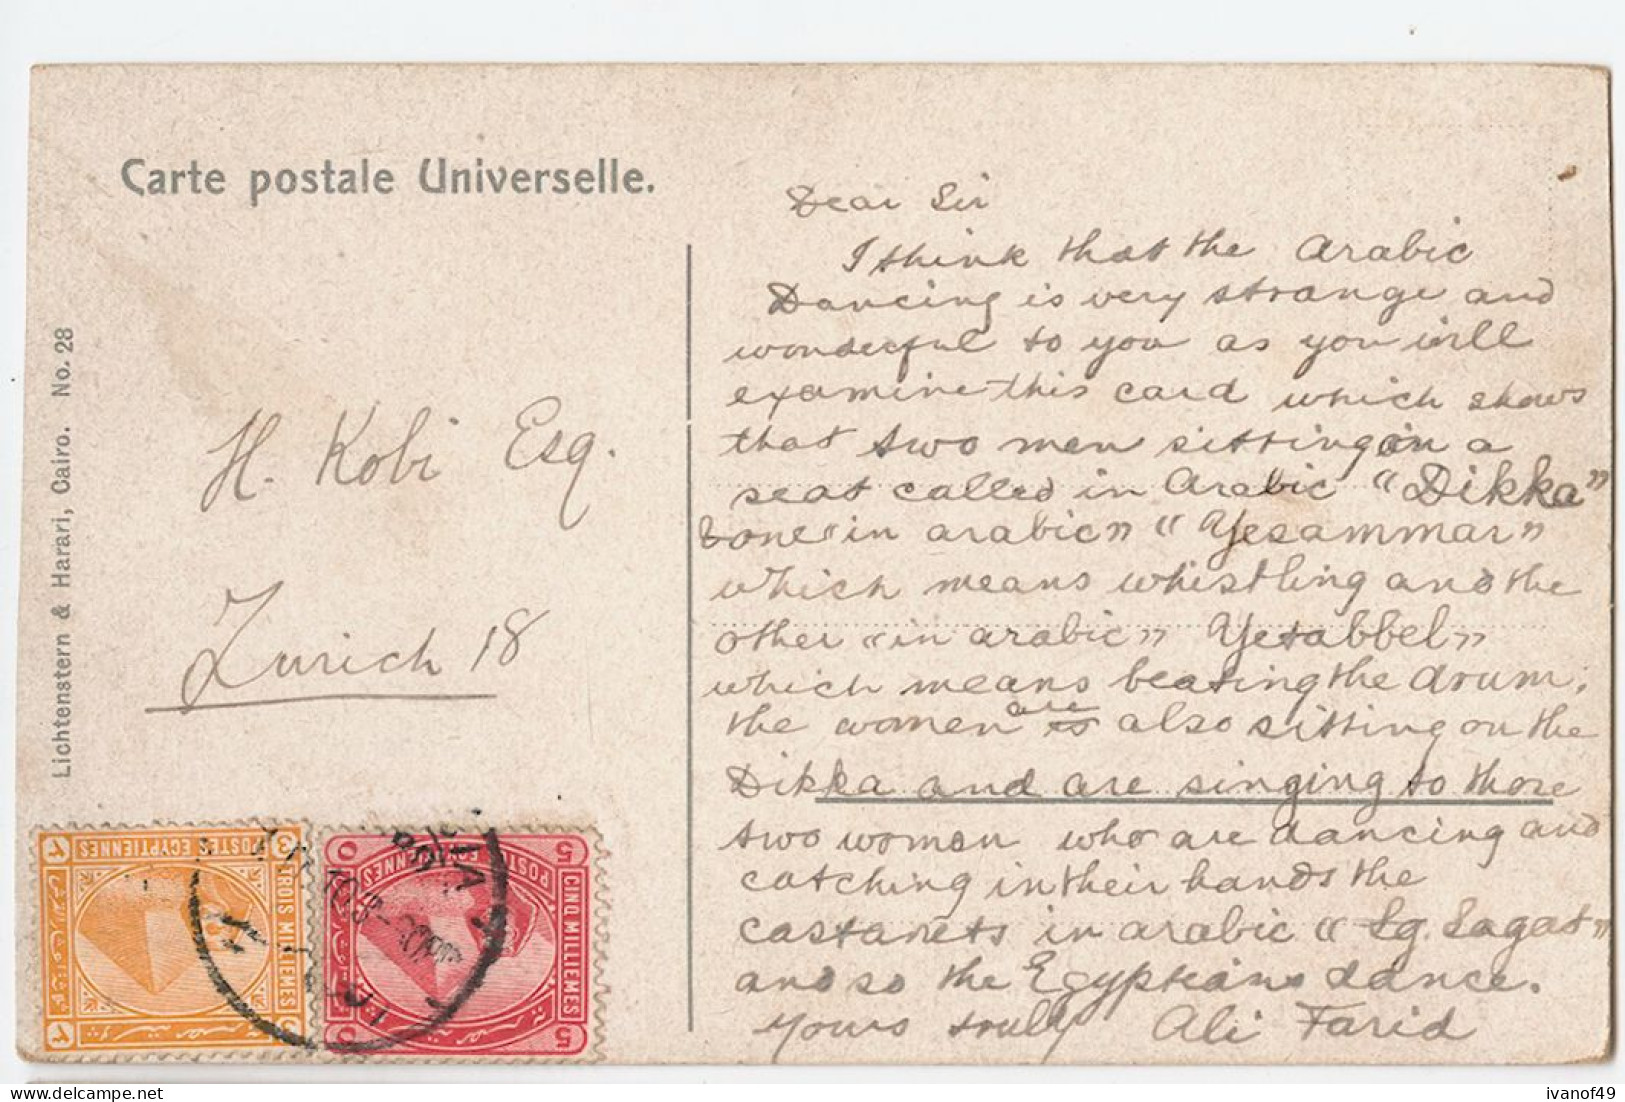 Carte postale Universelle.
Lichtenstern & Harari, Cairo. No. 28
H. Kobi Esq.
Zurich 18
Dear Sir
I think that the Arabic
Dancing is very strange and
wonderful to you as you will
examine this card which shows
that two men sitting on a
seat called in Arabic "Dikka"
one "in arabic" "Yesammar"
which means whistling and the
other "in arabic" Yetabbel"
which means beating the drum.
the women are is also sitting on the
Dikka and are singing to those
two women who are dancing and
catching in their hands the
castanets in arabic " Sg. Sagat"
and so the Egyptians dance.
Yours truly Ali Farid
POSTES EGYPTIENNES
TROIS MILLIEMES
3
3
POSTES EGYPTIENNES
CINQ MILLIEMES
5
5
ivanof49